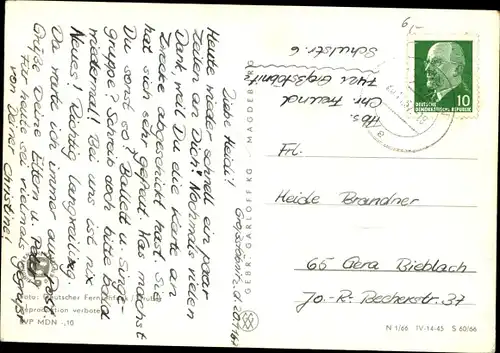 6,-
Großstöbnitz, d. 20.1.68
Liebe Heidi!
Heute wieder schnell ein paar
Zeilen an Dich! Nochmals vielen
Dank, weil Du die Karte an
Zwecke abgeschickt hast. Sie
hat sich sehr gefreut. Was machst
Du sonst so? Ballett u. Singe-
gruppe? Schreib doch bitte bald
wiedermal! Bei uns ist nix
Neues! Richtig langweilig.
Da warte ich immer auf Post.
Grüße Deine Eltern u.
Für heute sei vielmals gegrüßt
von Deiner Christine!
Abs.
Chr. Freund
7421 Großstöbnitz
Schulstr. 6
GEBR. GARLOFF KG · MAGDEBURG
DEUTSCHE
DEMOKRATISCHE REPUBLIK
10
Frl.
Heide Brandner
65 Gera Bieblach
Jo.-R.-Becherstr. 37
Foto: Deutscher Fernsehfunk
Reproduktion verboten
EVP MDN -,10
N 1/66 IV-14-45 S 60/66